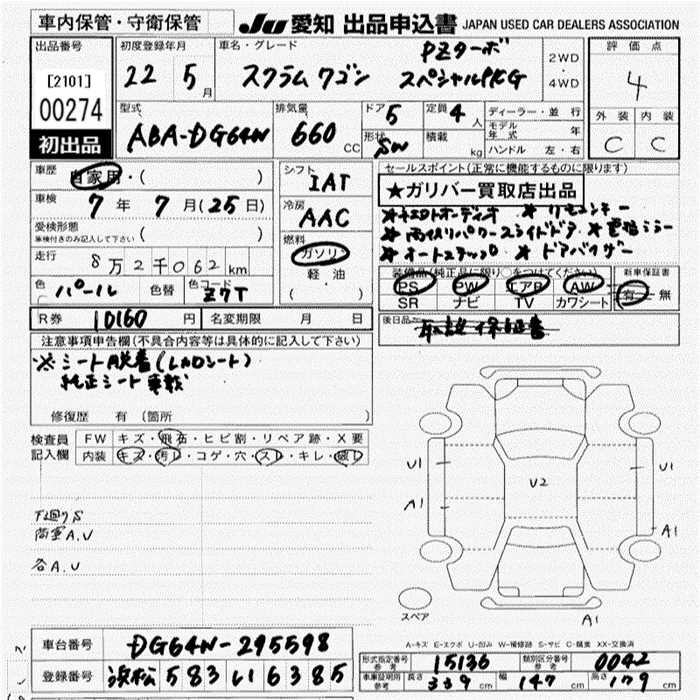 車内保管・守衛保管 JU 愛知 出品申込書 JAPAN USED CAR DEALERS ASSOCIATION
出品番号 初度登録年月 車名・グレード PZターボ 2WD・4WD 評価点
[2101] 22 5月 スクラムワゴン スペシャルPKG 4
00274 外装 内装
初出品 C C
型式 排気量 ドア 5 定員 4人 ディーラー・並行
ABA-DG64W 660 CC 形状 SW 積載 kg モデル年式 年
ハンドル 左・右
車歴 自家用・( ) シフト IAT セールスポイント(正常に機能するものに限ります)
車検 7年 7月(25日) 冷房 AAC ★ガリバー買取店出品
受検形態 ( )
車検付きのみ記入して下さい
★リモコンキー
★両側パワースライドドア ★電格ミラー
★オートステップ ★ドアバイザー
走行 8万2千062km 燃料 ガソリン
軽油
( )
色 パール 色替 色コード Z7T
装備品(純正品に限り○をつけてください) 新車保証書
PS PW エアB AW 有・無
SR ナビ TV カワシート
R券 10160円 名変期限 月 日 後日品
取説 保証書
注意事項申告欄(不具合内容等は具体的に記入して下さい)
※シート脱着(LHDシート)
純正シート車載
修復歴 有(箇所 )
検査員記入欄 FW キズ・飛石・ヒビ割・リペア跡・X要
内装 キズ・汚レ・コゲ・穴・スレ・キレ・破レ
U1 U2 U1
A1 A1
下廻りS
荷室A.U
各A.U
スペア A1
A-キズ E-エクボ U-凹み W-補修跡 S-サビ C-腐食 XX-交換済
車台番号 DG64W-295598
登録番号 浜松 583 い 6385
形式指定番号 参考 15136 類別区分番号 参考 0042
車車証明用 参考 長さ 339cm 幅 147cm 高さ 179cm